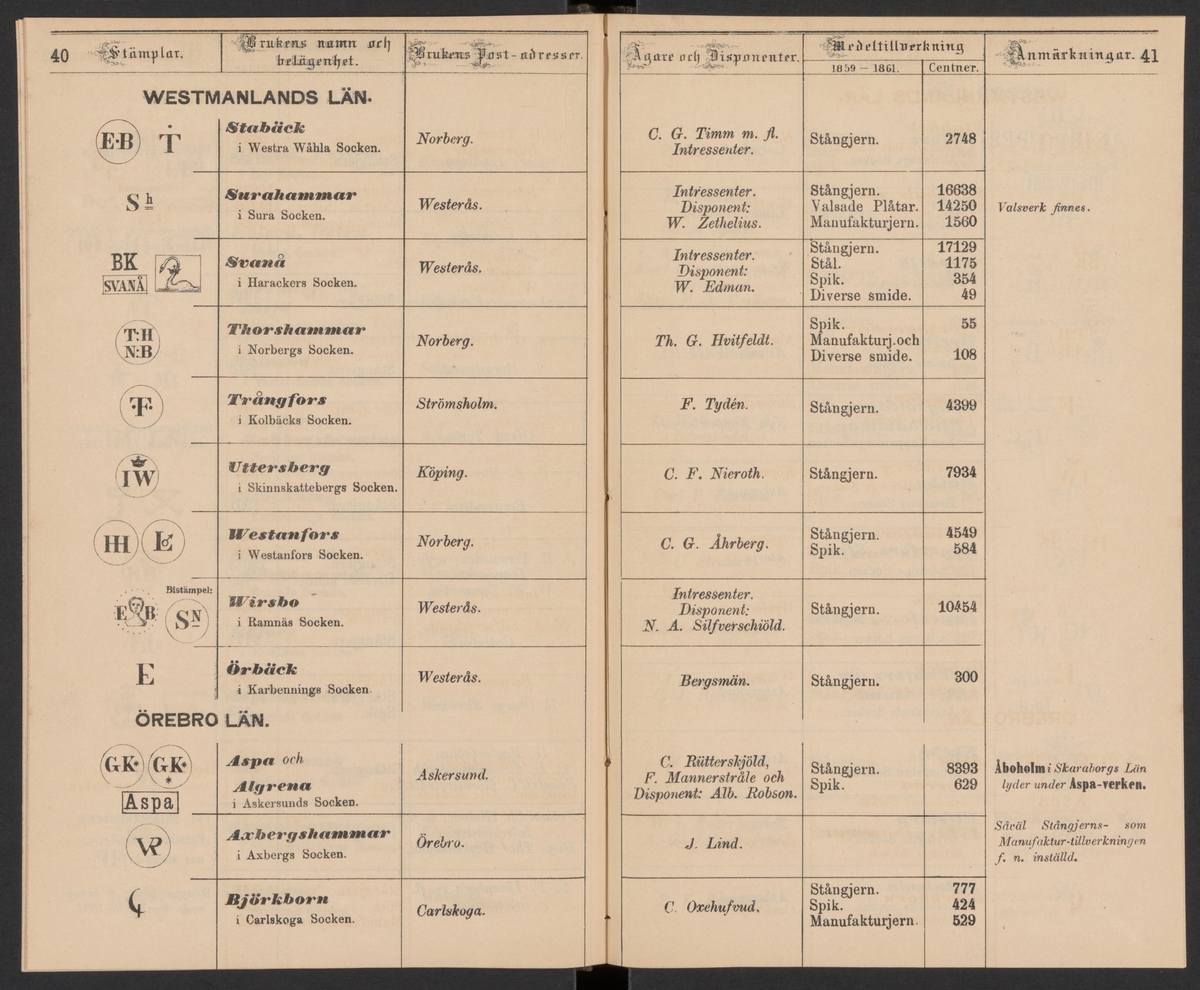 40 Stämplar. Brukens namn och belägenhet. Brukens Post-adresser. Ägare och Disponenter. Medeltillverkning 1859 – 1861. Centner. Anmärkningar. 41
WESTMANLANDS LÄN.
E·B T Stabäck Norberg. C. G. Timm m. fl. Stångjern. 2748
i Westra Wåhla Socken. Intressenter.
Sh Surahammar Westerås. Intressenter. Stångjern. 16638
i Sura Socken. Disponent: Valsade Plåtar. 14250 Valsverk finnes.
W. Zethelius. Manufakturjern. 1560
BK Svanå Westerås. Intressenter. Stångjern. 17129
SVANÅ i Harackers Socken. Disponent: Stål. 1175
W. Edman. Spik. 354
Diverse smide. 49
T:H Thorshammar Norberg. Th. G. Hvitfeldt. Spik. 55
N:B i Norbergs Socken. Manufakturj. och
Diverse smide. 108
·T· Trångfors Strömsholm. F. Tydén. Stångjern. 4399
i Kolbäcks Socken.
IW Uttersberg Köping. C. F. Nieroth. Stångjern. 7934
i Skinnskattebergs Socken.
HH Westanfors Norberg. C. G. Åhrberg. Stångjern. 4549
i Westanfors Socken. Spik. 584
Bistämpel:
E B SN Wirsbo Westerås. Intressenter. Stångjern. 10454
i Ramnäs Socken. Disponent:
N. A. Silfverschiöld.
E Örbäck Westerås. Bergsmän. Stångjern. 300
i Karbennings Socken.
ÖREBRO LÄN.
GK* GK* Aspa och Askersund. C. Rütterskjöld, Stångjern. 8393 Åboholm i Skaraborgs Län
Aspa Algrena F. Mannerstråle och Spik. 629 lyder under Aspa-verken.
i Askersunds Socken. Disponent: Alb. Robson.
VR Axbergshammar Örebro. J. Lind. Såväl Stångjerns- som
i Axbergs Socken. Manufaktur-tillverkningen
f. n. inställd.
Björkborn Carlskoga. C. Oxehufvud. Stångjern. 777
i Carlskoga Socken. Spik. 424
Manufakturjern. 529